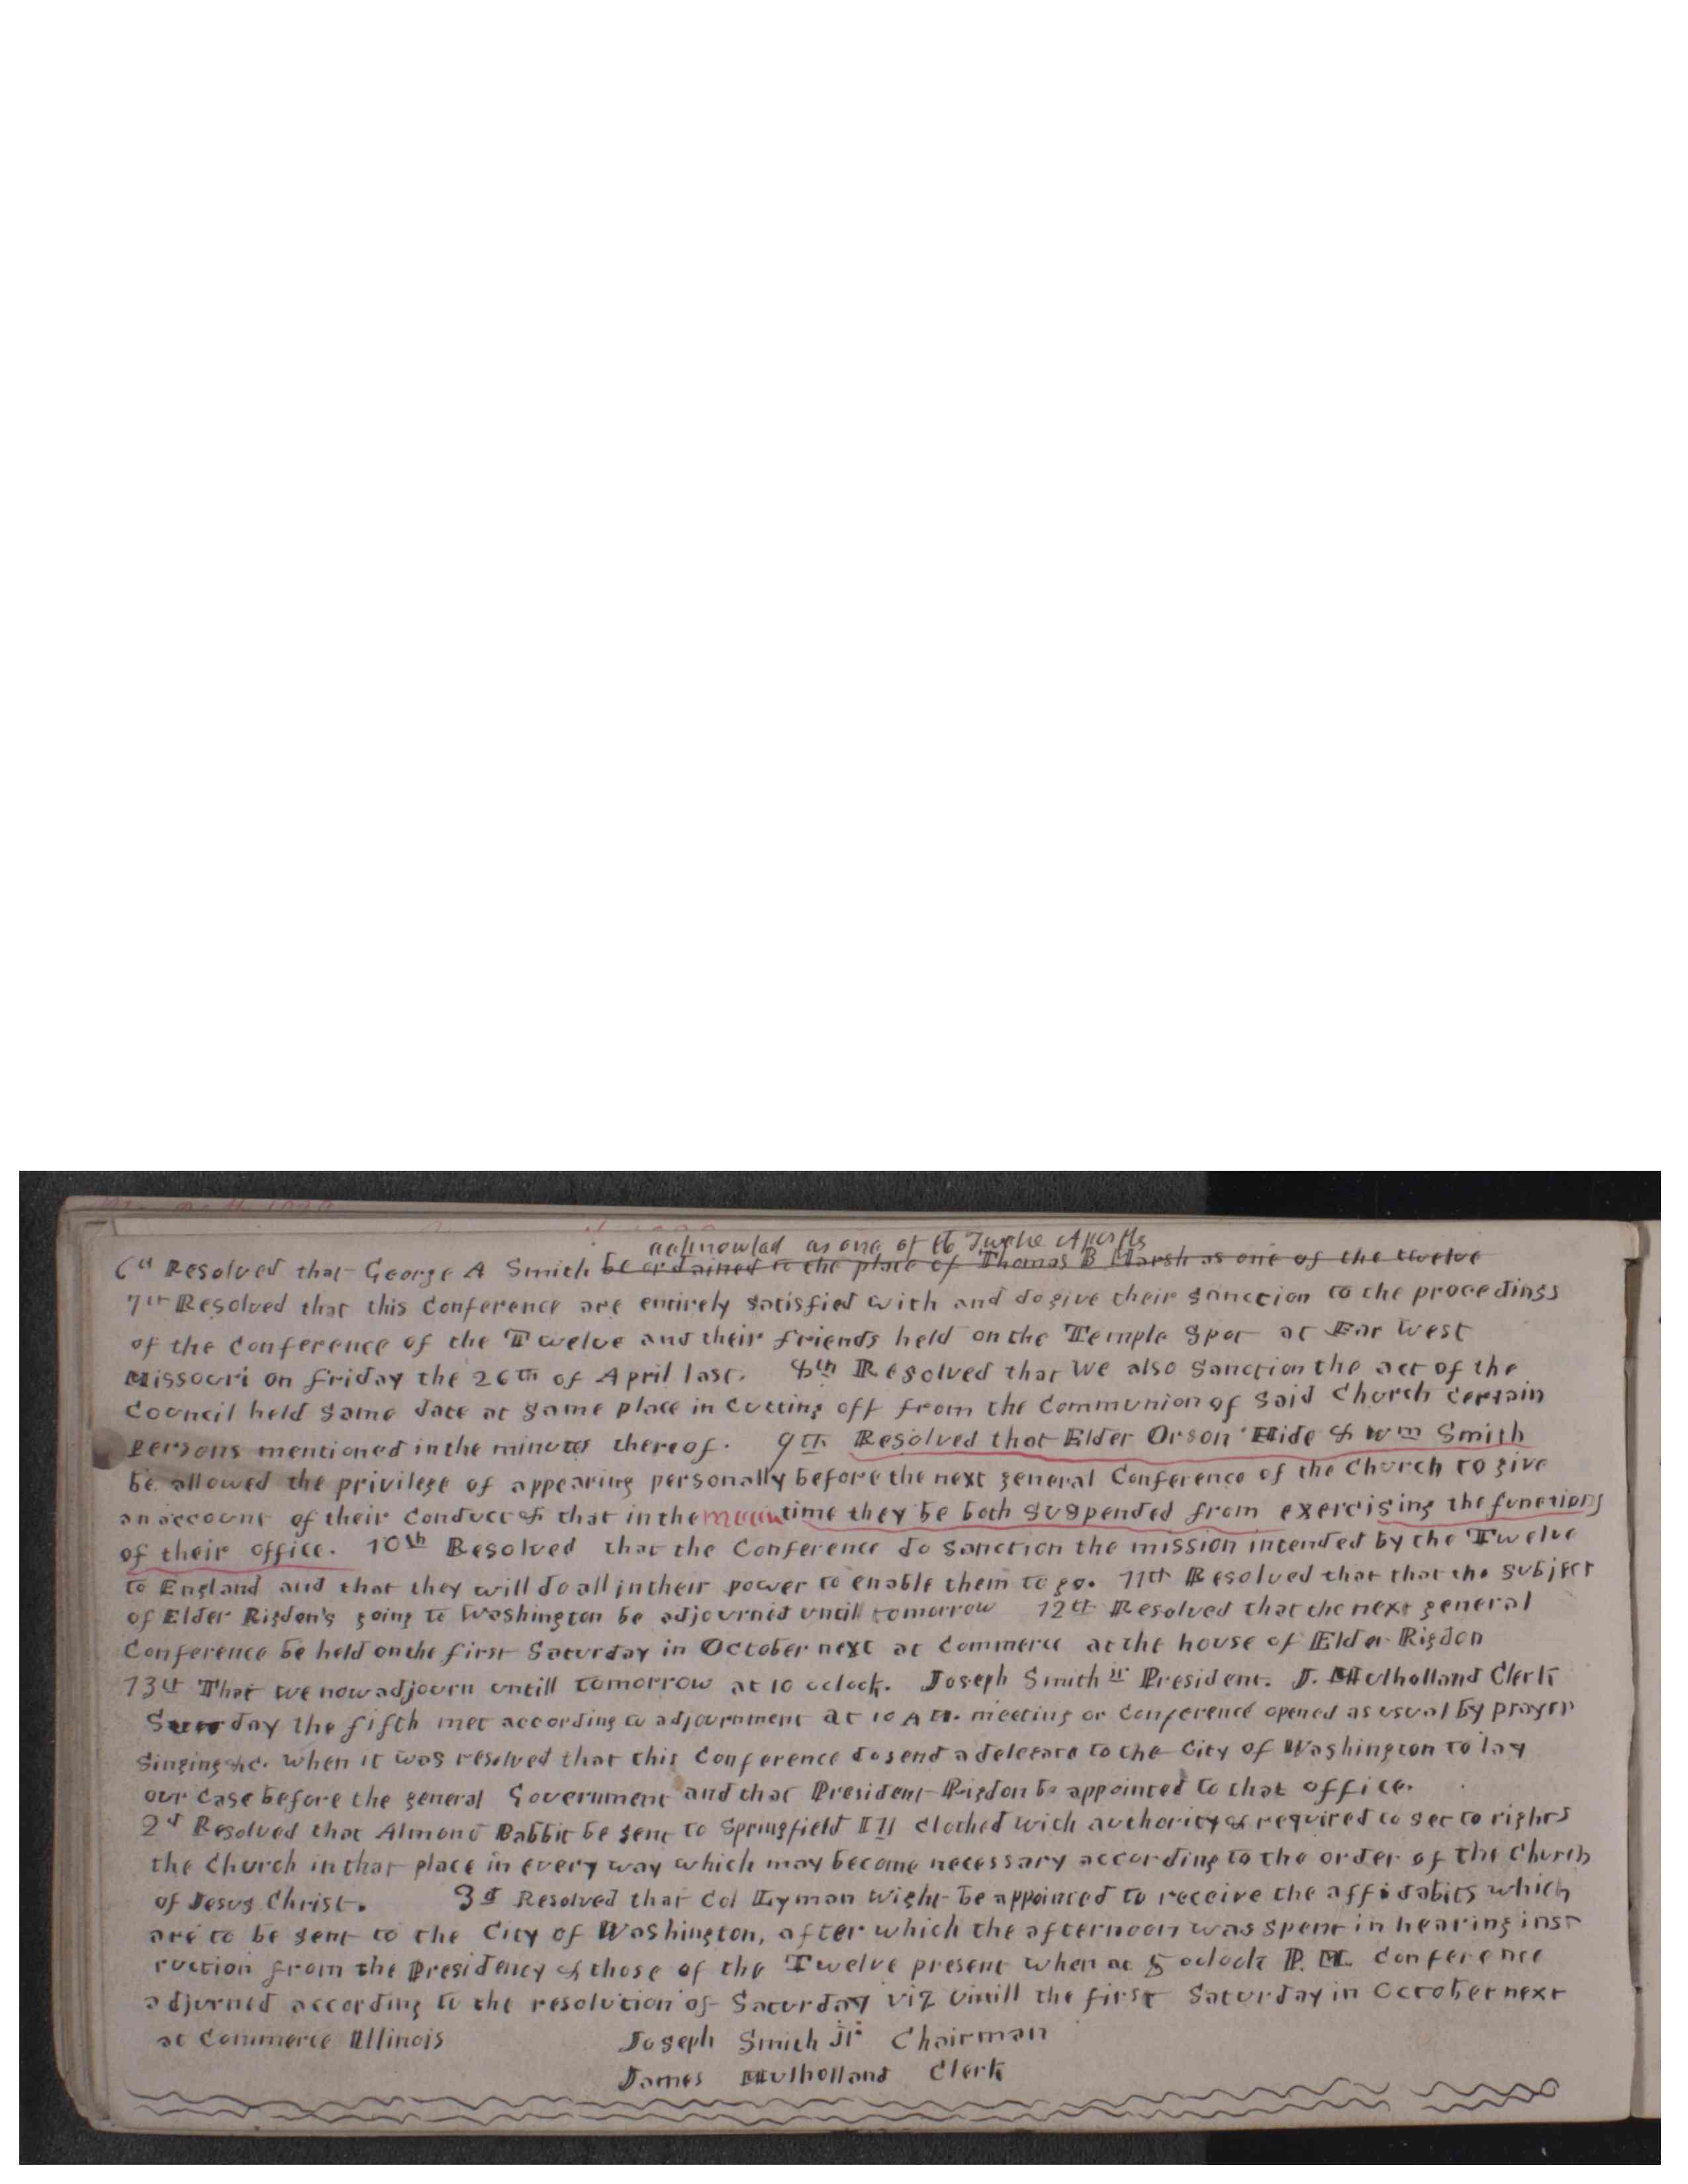 acknowlad as one of th Twelve Apostls
6th Resolved that George A Smith be ordained to the place of Thomas B Marsh as one of the twelve
7th Resolved that this Conference are entirely satisfied with and do give their sanction to the procedings
of the Conference of the Twelve and their friends held on the Temple Spot at Far West
Missouri on friday the 26th of April last. 8th Resolved that We also Sanction the act of the
Council held same date at same place in cutting off from the Communion of Said Church Certain
Persons mentioned in the minutes thereof. 9th Resolved that Elder Orson Hide & Wm Smith
be allowed the privilege of appearing personally before the next general Conference of the Church to give
an account of their Conduct & that in the mean time they be both suspended from exercising the functions
of their office. 10th Resolved that the Conference do sanction the mission intended by the Twelve
to England and that they will do all in their power to enable them to go. 11th Resolved that that the subject
of Elder Rigdon's going to Washington be adjourned untill tomorrow 12th Resolved that the next general
Conference be held on the first Saturday in October next at Commerce at the house of Elder Rigdon
13th That we now adjourn untill tomorrow at 10 oclock. Joseph Smith Jr President. J. Mulholland Clerk
Sunday the fifth met according to adjournment at 10 A M. meeting or Conference opened as usual by prayer
Singing &c. When it was resolved that this Conference do send a delegate to the City of Washington to lay
our Case before the general Government and that President Rigdon be appointed to that office.
2d Resolved that Almond Babbit be sent to Springfield Ill clothed with authority & required to set to rights
the Church in that place in every way which may become necessary according to the order of the Church
of Jesus Christ. 3d Resolved that Col Lyman Wight be appointed to receive the affidabits which
are to be sent to the City of Washington, after which the afternoon was spent in hearing inst
ruction from the Presidency & those of the Twelve present when at 5 oclock P. M. Conference
adjurned according to the resolution of Saturday viz untill the first Saturday in October next
at Commerce Illinois Joseph Smith Jr Chairman
James Mulholland Clerk